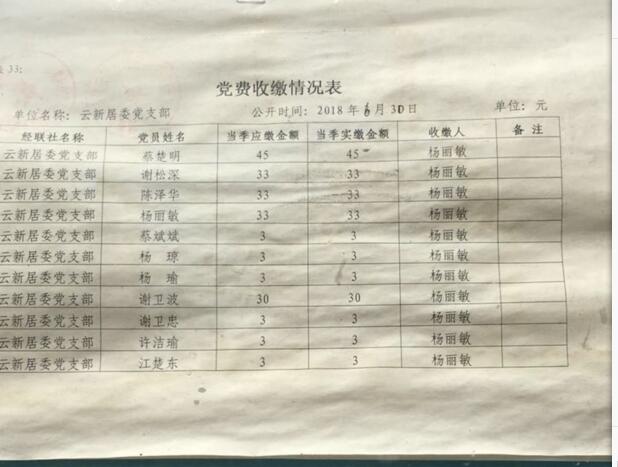 33:
党费收缴情况表
单位名称: 云新居委党支部 公开时间: 2018 年 6 月 30 日 单位: 元
经联社名称 党员姓名 当季应缴金额 当季实缴金额 收缴人 备 注
云新居委党支部 蔡楚明 45 45 杨丽敏
云新居委党支部 谢松深 33 33 杨丽敏
云新居委党支部 陈泽华 33 33 杨丽敏
云新居委党支部 杨丽敏 33 33 杨丽敏
云新居委党支部 蔡斌斌 3 3 杨丽敏
云新居委党支部 杨 琼 3 3 杨丽敏
云新居委党支部 杨 瑜 3 3 杨丽敏
云新居委党支部 谢卫波 30 30 杨丽敏
云新居委党支部 谢卫忠 3 3 杨丽敏
云新居委党支部 许洁瑜 3 3 杨丽敏
云新居委党支部 江楚东 3 3 杨丽敏